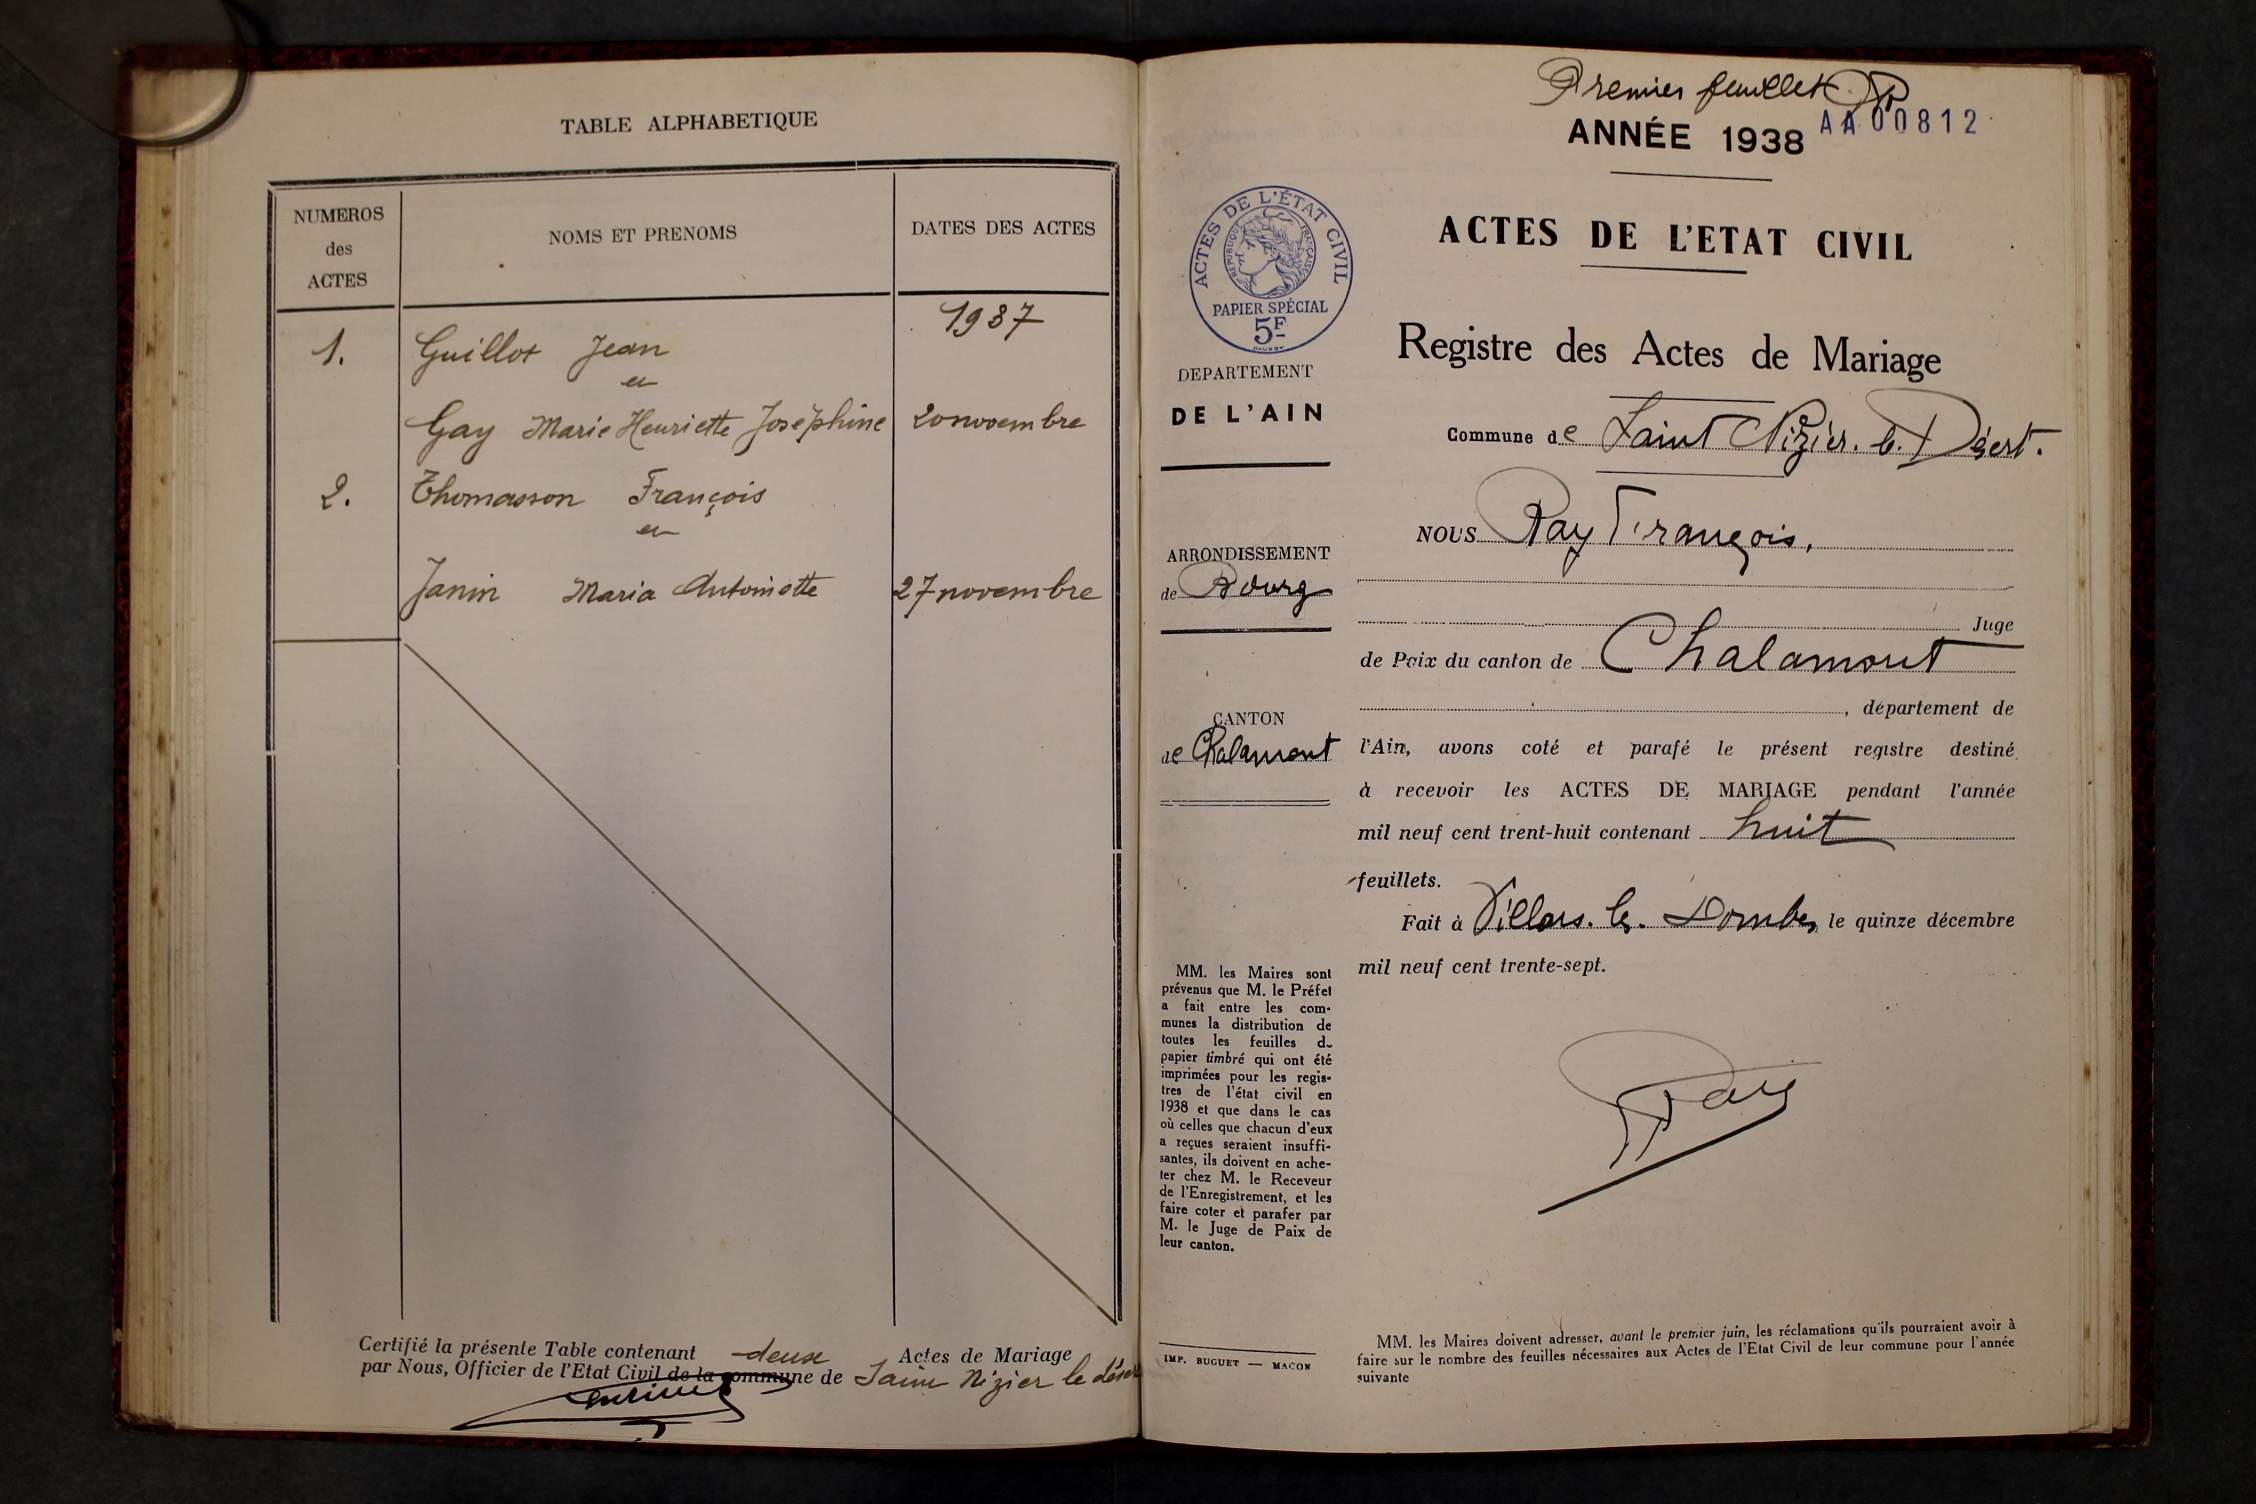 TABLE ALPHABETIQUE
NUMEROS
des
ACTES
NOMS ET PRENOMS
DATES DES ACTES
1937
1. Guillot Jean
et
Gay Marie Henriette Joséphine 20 novembre
2. Thomasson François
et
Janin Maria Antoinette 27 novembre
Certifié la présente Table contenant deux Actes de Mariage
par Nous, Officier de l'Etat Civil de la commune de Saint Nizier le désert
Premier feuillet
ANNÉE 1938
AA00812
ACTES DE L'ETAT CIVIL
Registre des Actes de Mariage
Commune de Saint Nizier. le. Désert.
ACTES DE L'ÉTAT CIVIL
RÉPUBLIQUE FRANÇAISE
PAPIER SPÉCIAL
5F
DEPARTEMENT
DE L'AIN
ARRONDISSEMENT
de Bourg
CANTON
de Chalamont
MM. les Maires sont
prévenus que M. le Préfet
a fait entre les com-
munes la distribution de
toutes les feuilles de
papier timbré qui ont été
imprimées pour les regis-
tres de l'état civil en
1938 et que dans le cas
où celles que chacun d'eux
a reçues seraient insuffi-
santes, ils doivent en ache-
ter chez M. le Receveur
de l'Enregistrement, et les
faire coter et parafer par
M. le Juge de Paix de
leur canton.
IMP. BUGUET — MACON
NOUS Ray François,
Juge
de Paix du canton de Chalamont
, département de
l'Ain, avons coté et parafé le présent registre destiné
à recevoir les ACTES DE MARIAGE pendant l'année
mil neuf cent trent-huit contenant huit
feuillets.
Fait à Villars. les. Dombes, le quinze décembre
mil neuf cent trente-sept.
Ray
MM. les Maires doivent adresser, avant le premier juin, les réclamations qu'ils pourraient avoir à
faire sur le nombre des feuilles nécessaires aux Actes de l'Etat Civil de leur commune pour l'année
suivante